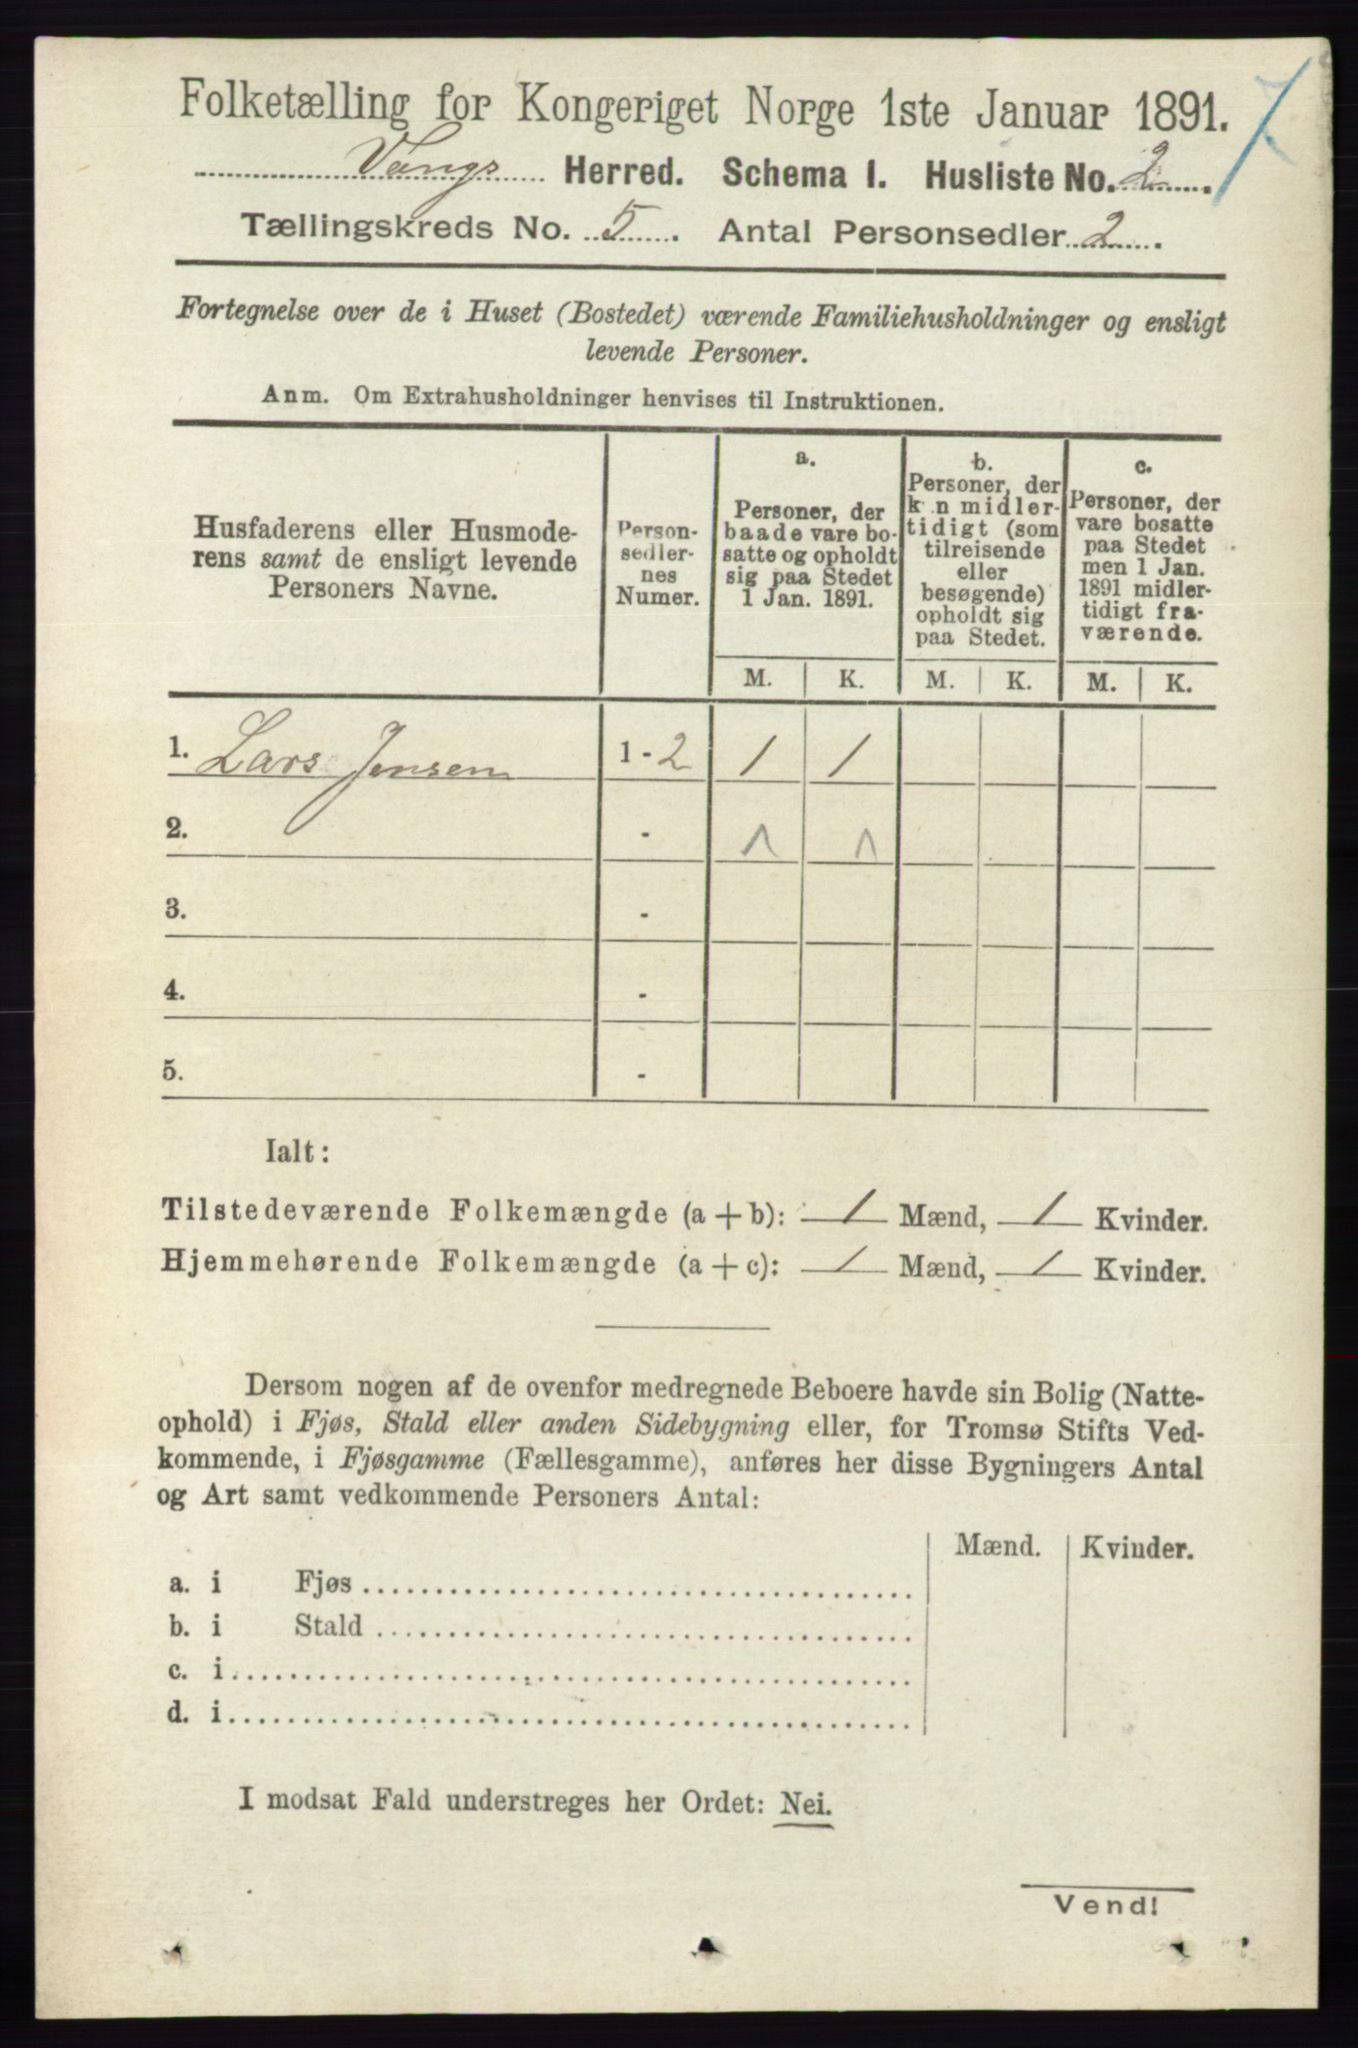 Folketælling for Kongeriget Norge 1ste Januar 1891.
Vangs Herred. Schema I. Husliste No. 2.
Tællingskreds No. 5. Antal Personsedler 2.
Fortegnelse over de i Huset (Bostedet) værende Familiehusholdninger og ensligt
levende Personer.
Anm. Om Extrahusholdninger henvises til Instruktionen.
Husfaderens eller Husmode-
rens samt de ensligt levende
Personers Navne.
Person-
sedler-
nes
Numer.
a.
Personer, der
baade vare bo-
satte og opholdt
sig paa Stedet
1 Jan. 1891.
b.
Personer, der
k n midler-
tidigt (som
tilreisende
eller
besøgende)
opholdt sig
paa Stedet.
c.
Personer, der
vare bosatte
paa Stedet
men 1 Jan.
1891 midler-
tidigt fra-
værende.
M. K. M. K. M. K.
1. Lars Jensen 1 - 2 1 1
2. -
3. -
4. -
5. -
Ialt:
Tilstedeværende Folkemængde (a + b): 1 Mænd, 1 Kvinder.
Hjemmehørende Folkemængde (a + c): 1 Mænd, 1 Kvinder.
Dersom nogen af de ovenfor medregnede Beboere havde sin Bolig (Natte-
ophold) i Fjøs, Stald eller anden Sidebygning eller, for Tromsø Stifts Ved-
kommende, i Fjøsgamme (Fællesgamme), anføres her disse Bygningers Antal
og Art samt vedkommende Personers Antal:
Mænd. Kvinder.
a. i Fjøs
b. i Stald
c. i
d. i
I modsat Fald understreges her Ordet: Nei.
Vend!